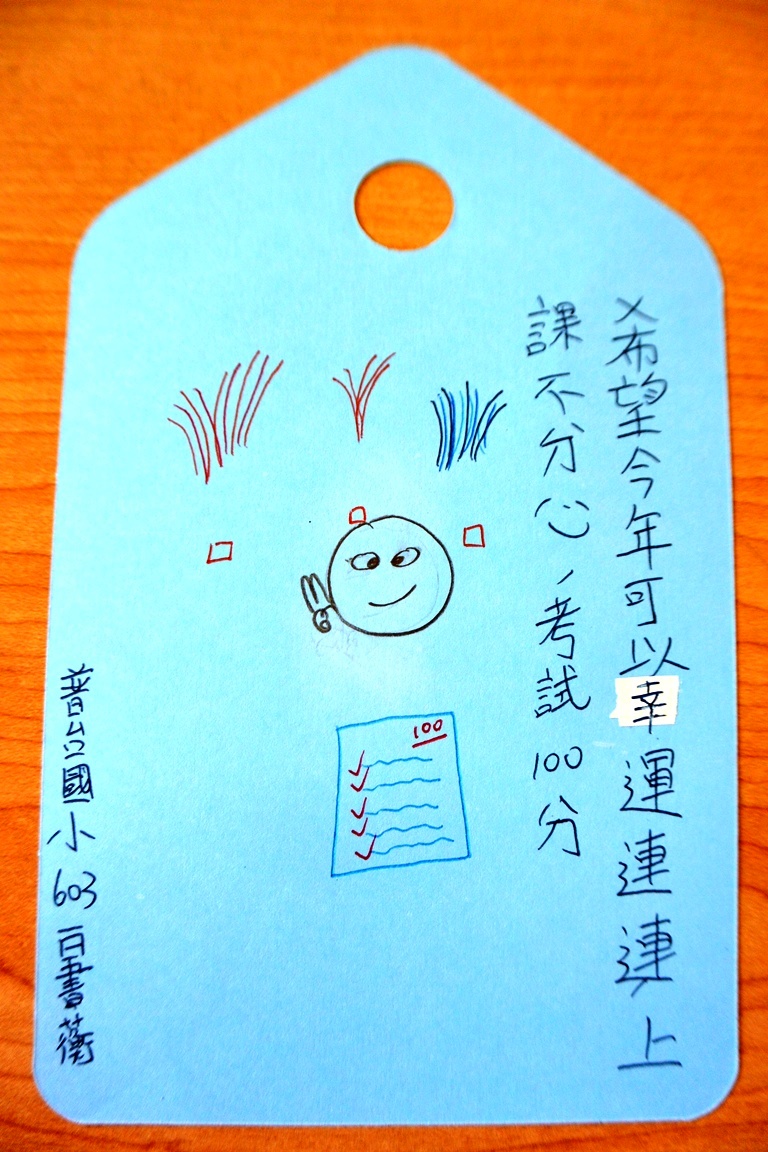 希望今年可以幸運連連上
課不分心、考試100分
100
普台國小603百書蘅